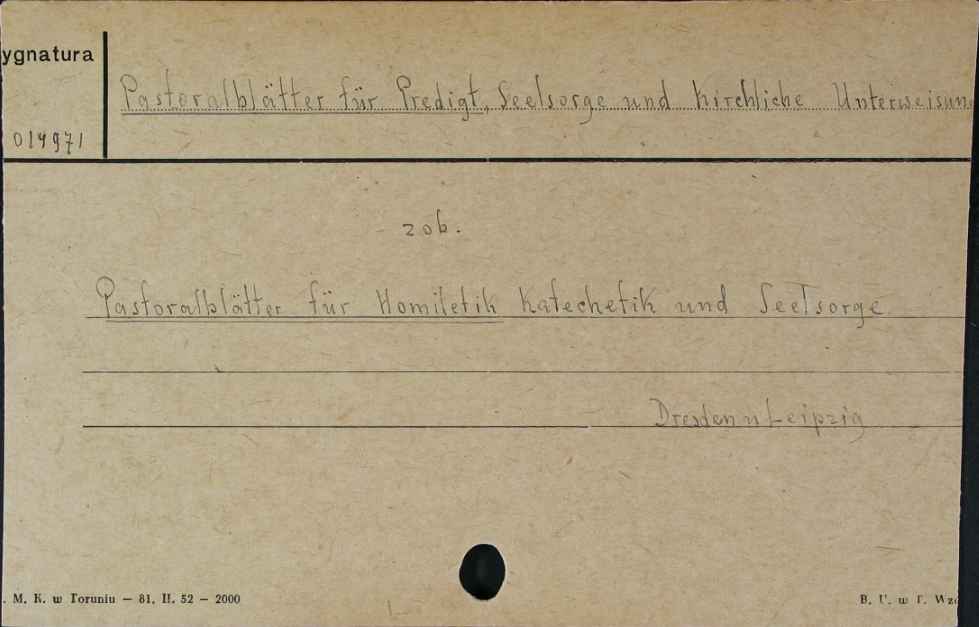 ygnatura
Pastoralblätter für Predigt, Seelsorge und kirchliche Unterweisung
014971
zob.
Pastoralblätter für Homiletik Katechetik und Seelsorge
Dresden u Leipzig
. M. K. w Toruniu — 81. II. 52 — 2000
B. U. w T.